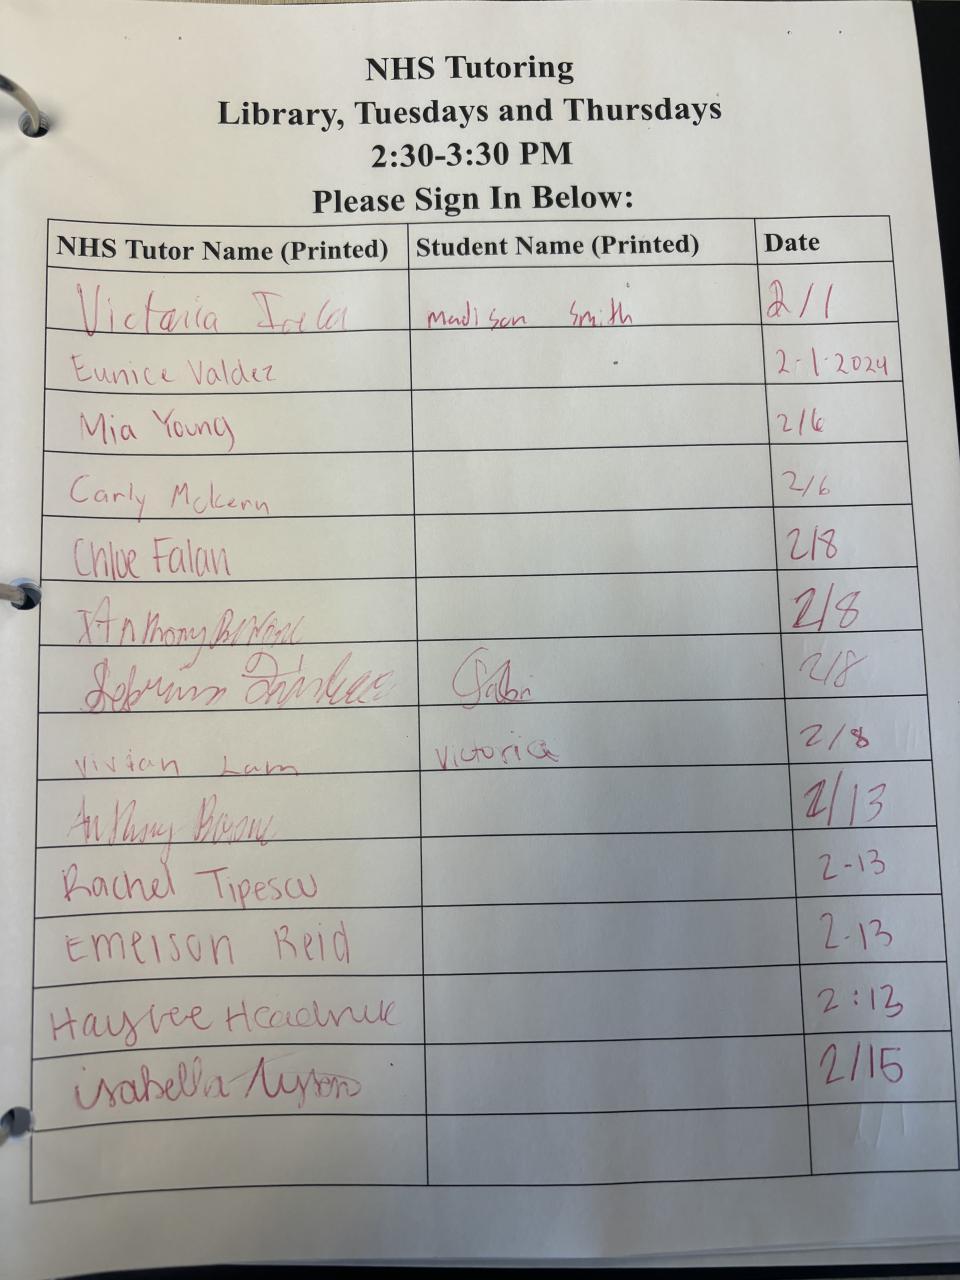 NHS Tutoring
Library, Tuesdays and Thursdays
2:30-3:30 PM
Please Sign In Below:
NHS Tutor Name (Printed) Student Name (Printed) Date
Victoria Madison Smith 2/1
Eunice Valdez 2-1-2024
Mia Young 2/6
Carly McKern 2/6
Chloe Falan 2/8
Anthony 2/8
2/8
Vivian Lam Victoria 2/8
Anthony 2/13
Rachel Tipescu 2-13
Emerson Reid 2-13
2:13
isabella 2/15